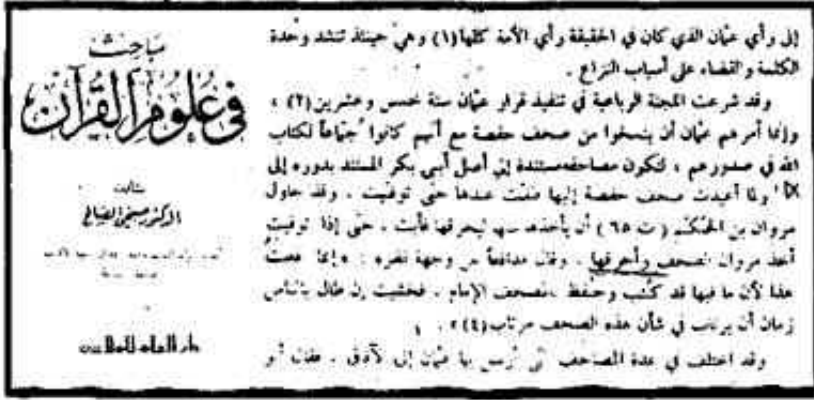 إلى رأي عثمان الذي كان في الحقيقة رأي الأمة كلها (١) وهي حينئذ تنشد وحدة
الكلمة والقضاء على أسباب النزاع .
وقد شرعت اللجنة الرباعية في تنفيذ قرار عثمان سنة خمس وعشرين (٢) ،
وإنما أمرهم عثمان أن ينسخوا من صحف حفصة مع أنهم كانوا جمّاعاً لكتاب
الله في صدورهم ، لتكون مصاحفه مستندة إلى أصل أبي بكر المستند بدوره إلى
ولما أعيدت صحف حفصة إليها ظلت عندها حتى توفيت . وقد حاول
مروان بن الحكم ( ت ٦٥ ) أن يأخذها منها ليحرقها فأبت ، حتى إذا توفيت
أخذ مروان الصحف وأحرقها ، وقال مدافعاً عن وجهة نظره : « إنما فعلتُ
هذا لأن ما فيها قد كُتب وحفظ بالمصحف الإمام ، فخشيت إن طال بالناس
زمان أن يرتاب في شأن هذه الصحف مرتاب (٤) » .
وقد اختلف في عدة المصاحف التي أرسل بها عثمان إلى الآفاق ، فقال أبو
مباحث
في علوم القرآن
تأليف
الدكتور صبحي الصالح
دار العلم للملايين